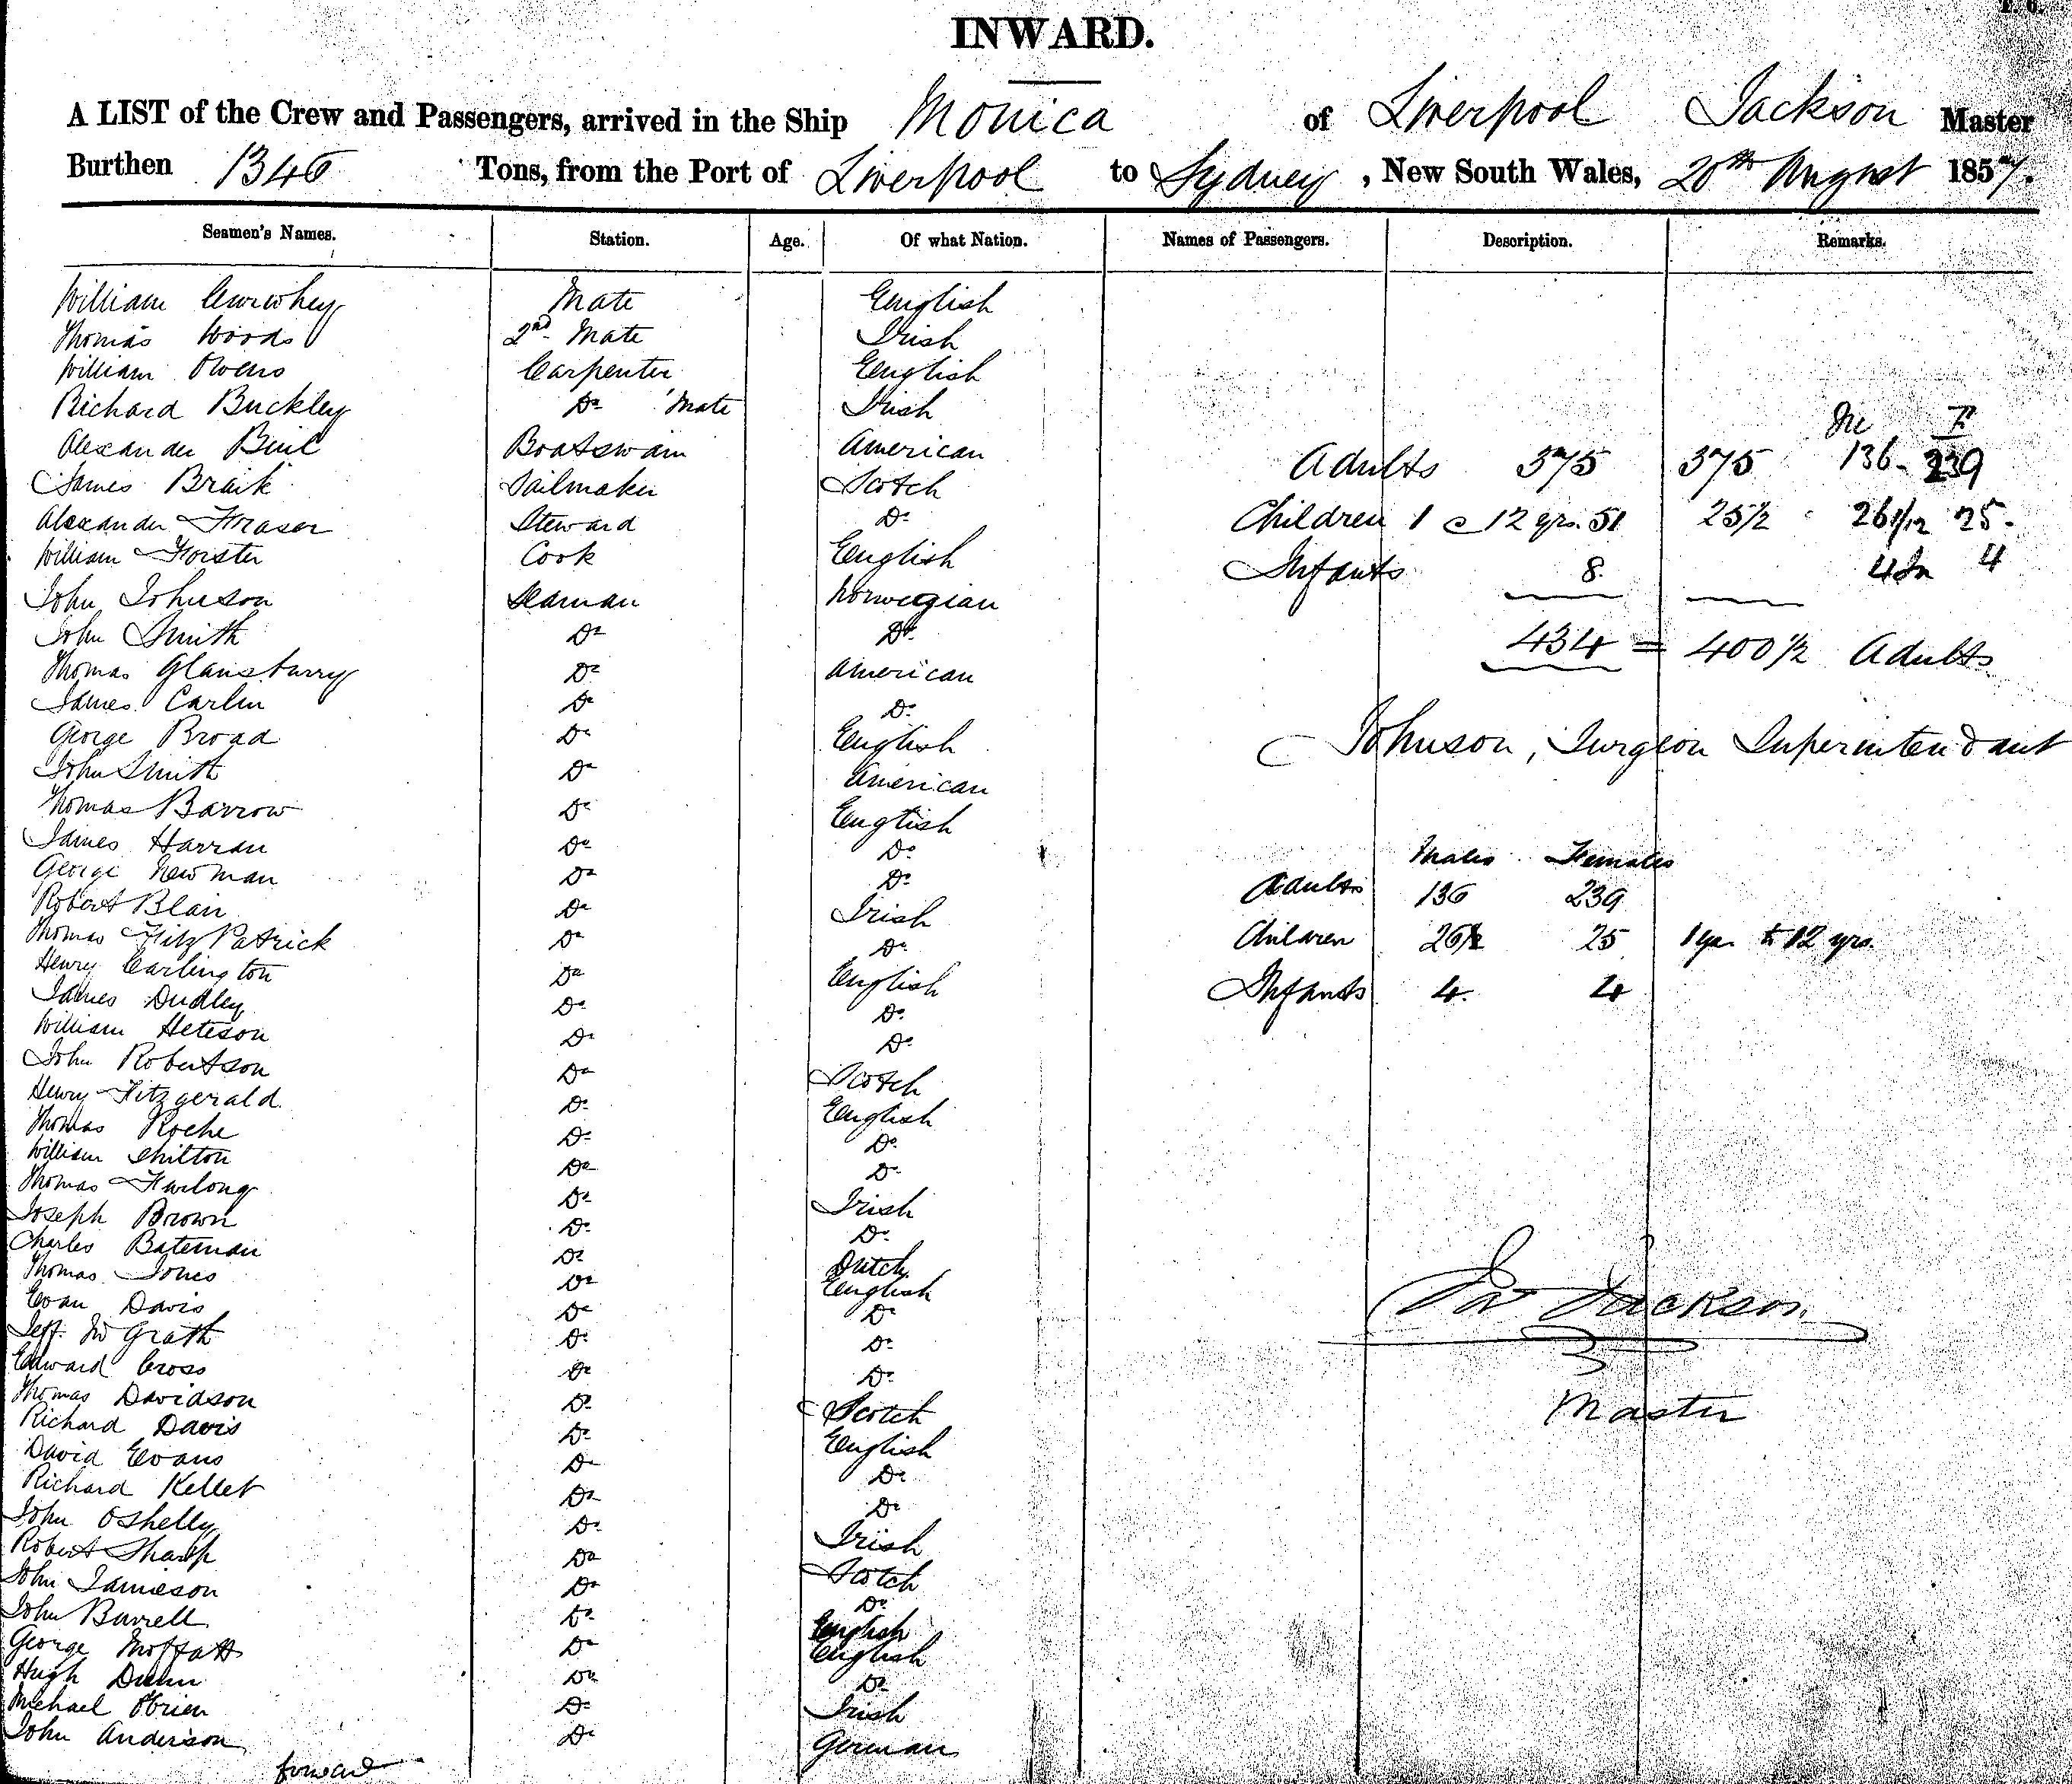 INWARD.
A LIST of the Crew and Passengers, arrived in the Ship Monica of Liverpool Jackson Master
Burthen 1346 Tons, from the Port of Liverpool to Sydney, New South Wales, 20th August 1857.
Seamen's Names. Station. Age. Of what Nation. Names of Passengers. Description. Remarks.
William Mate English
Thomas Woods 2nd Mate Irish
William Owens Carpenter English
Richard Buckley Do Mate Irish
Alexander Boatswain American
James Braik Sailmaker Scotch
Alexander Fraser Steward Do
William Forster Cook English
John Johnson Seaman Norwegian
John Smith Do Do
Thomas Glansburry Do American
James Carlin Do Do
George Broad Do English
John Smith Do American
Thomas Barrow Do English
James Harran Do Do
George Newman Do Do
Robert Blair Do Irish
Thomas FitzPatrick Do Do
Henry Carlington Do English
James Dudley Do Do
William Heteson Do Do
John Robertson Do Scotch
Henry Fitzgerald. Do English
Thomas Roche Do Do
William Shilton Do Do
Thomas Furlong Do Irish
Joseph Brown Do Do
Charles Bateman Do Dutch
Thomas Jones Do English
Evan Davis Do Do
Jeff. McGrath Do Do
Edward Cross Do Do
Thomas Davidson Do Scotch
Richard Davis Do English
David Evans Do Do
Richard Kellet Do Do
John OShelly Do Irish
Robert Sharp Do Scotch
John Jamieson Do Do
John Burrell Do English
George Moffatt Do English
Hugh Dunn Do Do
Michael OBrien Do Irish
John Anderson Do German
forward
M F
Adults 375 375 136 - 239
Children 1 @ 12 yrs. 51 25 1/2 26 25.
Infants 8. 4 4
434 = 400 1/2 Adults
Johnson, Surgeon Superintendant
Males Females
Adults 136 239
Children 26 25 1 yr to 12 yrs.
Infants 4. 4
Jackson
Master